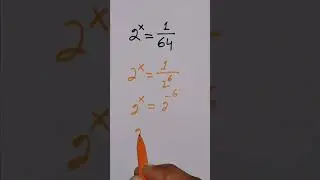 2^x = 1/64
2^x = 1/2^6
2^x = 2^-6
2